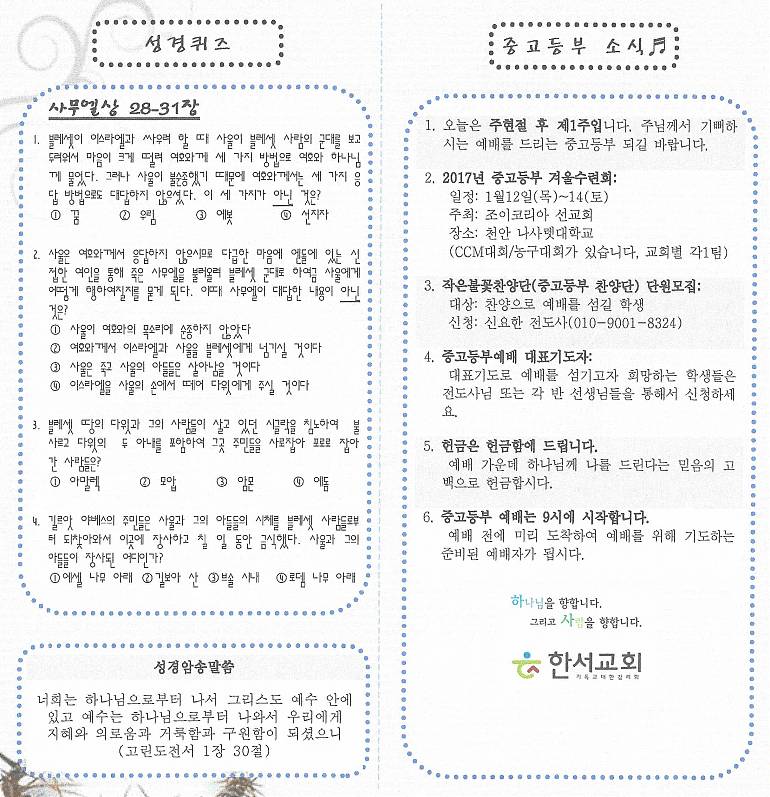 성경퀴즈
사무엘상 28-31장
1. 블레셋이 이스라엘과 싸우려 할 때 사울이 블레셋 사람의 군대를 보고
두려워서 마음이 크게 떨려 여호와께 세 가지 방법으로 여호와 하나님
께 물었다. 그러나 사울이 불순종했기 때문에 여호와께서는 세 가지 응
답 방법으로도 대답하지 않으셨다. 이 세 가지가 아닌 것은?
① 꿈 ② 우림 ③ 에봇 ④ 선지자
2. 사울은 여호와께서 응답하지 않으시므로 다급한 마음에 엔돌에 있는 신
접한 여인을 통해 죽은 사무엘을 불러올려 블레셋 군대로 하여금 사울에게
어떻게 행하여질지를 묻게 된다. 이때 사무엘이 대답한 내용이 아닌
것은?
① 사울이 여호와의 목소리에 순종하지 않았다
② 여호와께서 이스라엘과 사울을 블레셋에게 넘기실 것이다
③ 사울은 죽고 사울의 아들들은 살아남을 것이다
④ 이스라엘을 사울의 손에서 떼어 다윗에게 주실 것이다
3. 블레셋 땅의 다윗과 그의 사람들이 살고 있던 시글락을 침노하여 불
사르고 다윗의 두 아내를 포함하여 그곳 주민들을 사로잡아 포로로 잡아
간 사람들은?
① 아말렉 ② 모압 ③ 암몬 ④ 에돔
4. 길르앗 야베스의 주민들은 사울과 그의 아들들의 시체를 블레셋 사람들로부
터 되찾아와서 이곳에 장사하고 칠 일 동안 금식했다. 사울과 그의
아들들이 장사된 어디인가?
①에셀 나무 아래 ②길보아 산 ③브솔 시내 ④로뎀 나무 아래
성경암송말씀
너희는 하나님으로부터 나서 그리스도 예수 안에
있고 예수는 하나님으로부터 나와서 우리에게
지혜와 의로움과 거룩함과 구원함이 되셨으니
(고린도전서 1장 30절)
중고등부 소식♬
1. 오늘은 주현절 후 제1주입니다. 주님께서 기뻐하
시는 예배를 드리는 중고등부 되길 바랍니다.
2. 2017년 중고등부 겨울수련회:
일정: 1월12일(목)~14(토)
주최: 조이코리아 선교회
장소: 천안 나사렛대학교
(CCM대회/농구대회가 있습니다, 교회별 각1팀)
3. 작은불꽃찬양단(중고등부 찬양단) 단원모집:
대상: 찬양으로 예배를 섬길 학생
신청: 신요한 전도사(010-9001-8324)
4. 중고등부예배 대표기도자:
대표기도로 예배를 섬기고자 희망하는 학생들은
전도사님 또는 각 반 선생님들을 통해서 신청하세
요.
5. 헌금은 헌금함에 드립니다.
예배 가운데 하나님께 나를 드린다는 믿음의 고
백으로 헌금합시다.
6. 중고등부 예배는 9시에 시작합니다.
예배 전에 미리 도착하여 예배를 위해 기도하는
준비된 예배자가 됩시다.
하나님을 향합니다.
그리고 사람을 향합니다.
한서교회
기독교대한감리회